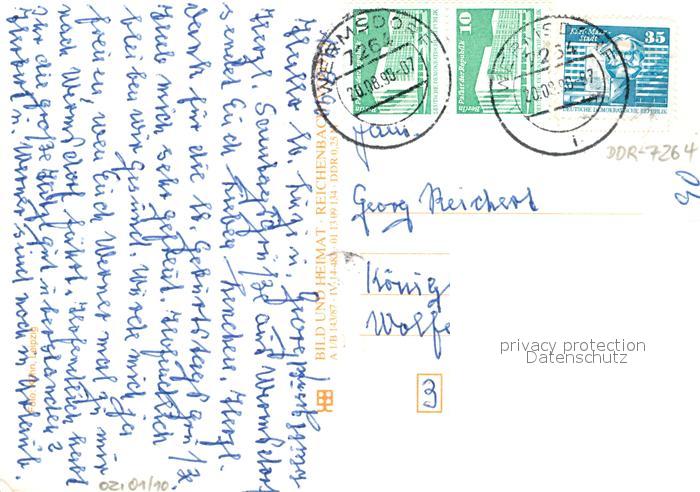 Herzl. Sonntagsgrüße aus Wermsdorf
sendet Euch Herzl.
Dank für die lb. Geburtstagsgrüße.
Habe mich sehr gefreut.
bleiben wir Gesund. Würde mich
freuen wen Euch Werner mal zu mir
nach Wermsdorf fährt. Hoffentlich habt
Ihr die große Hitze gut überstanden?
u. Werner sind noch in Urlaub.
Foto: Leipzig
02.01/10
BILD UND HEIMAT · REICHENBACH
A 1/B 143/87 IV-14-483 01 13 09 134 · DDR 0,25 M
10
Berlin
Palast der Republik
DEUTSCHE DEMOKRATISCHE REPUBLIK
10
Berlin
Palast der Republik
35
Karl-Marx-
Stadt
DEUTSCHE DEMOKRATISCHE REPUBLIK
WERMSDORF
7264
20.08.90-07
WERMSDORF
7264
20.08.90-07
DDR-7264
Fam.
Georg Reichert
König
Wolfe
privacy protection
Datenschutz